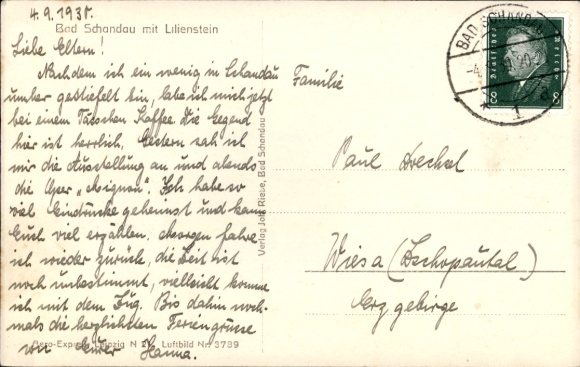 4.9.1931.
Bad Schandau mit Lilienstein
Liebe Eltern!
Nachdem ich ein wenig in Schandau
umher gestiefelt bin, labe ich mich jetzt
bei einem Tässchen Kaffee. Die Gegend
hier ist herrlich. Gestern sah ich
mir die Ausstellung an und abends
die Oper „Mignon“. Ich habe so
viel Eindrücke geheimst und kann
Euch viel erzählen. Morgen fahre
ich wieder zurück, die Zeit ist
noch unbestimmt, vielleicht komme
ich mit dem Zug. Bis dahin noch-
mals die herzlichsten Feriengrüsse
von Eurer Hanna.
Zero-Export, Leipzig N 22 Luftbild Nr. 3789
Verlag Joh. Riebe, Bad Schandau
BAD SCHANDAU
Deutsches Reich
8 8
Familie
Paul Drechsel
Wiesa (Zschopautal)
Erzgebirge